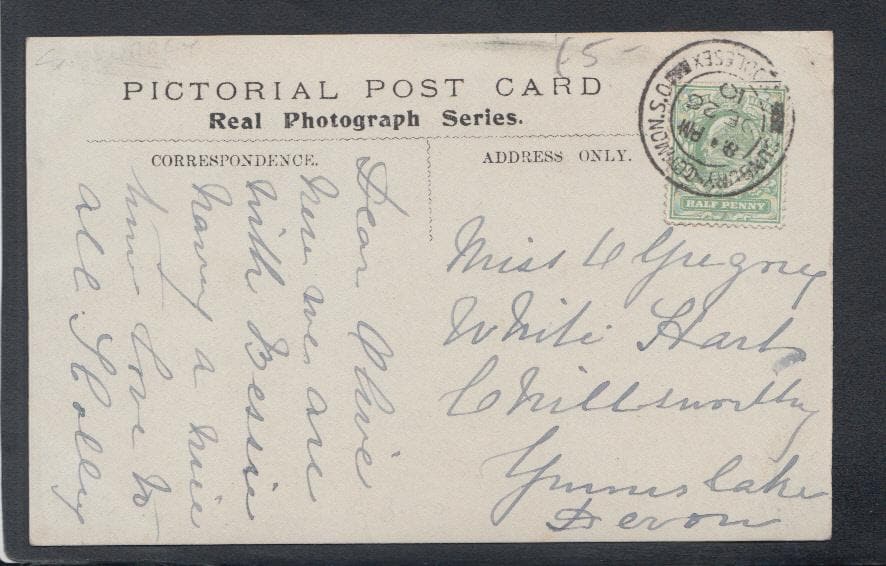 15-
PICTORIAL POST CARD
Real Photograph Series.
CORRESPONDENCE.
ADDRESS ONLY.
HALF PENNY
SUNBURY COMMON S.O.
MIDDLESEX
SE 26
10
Dear Olive
here we are
with Bessie
having a nice
time Love to
all
Miss Gregory
White Hart
Chillsworthy
Gunnislake
Devon